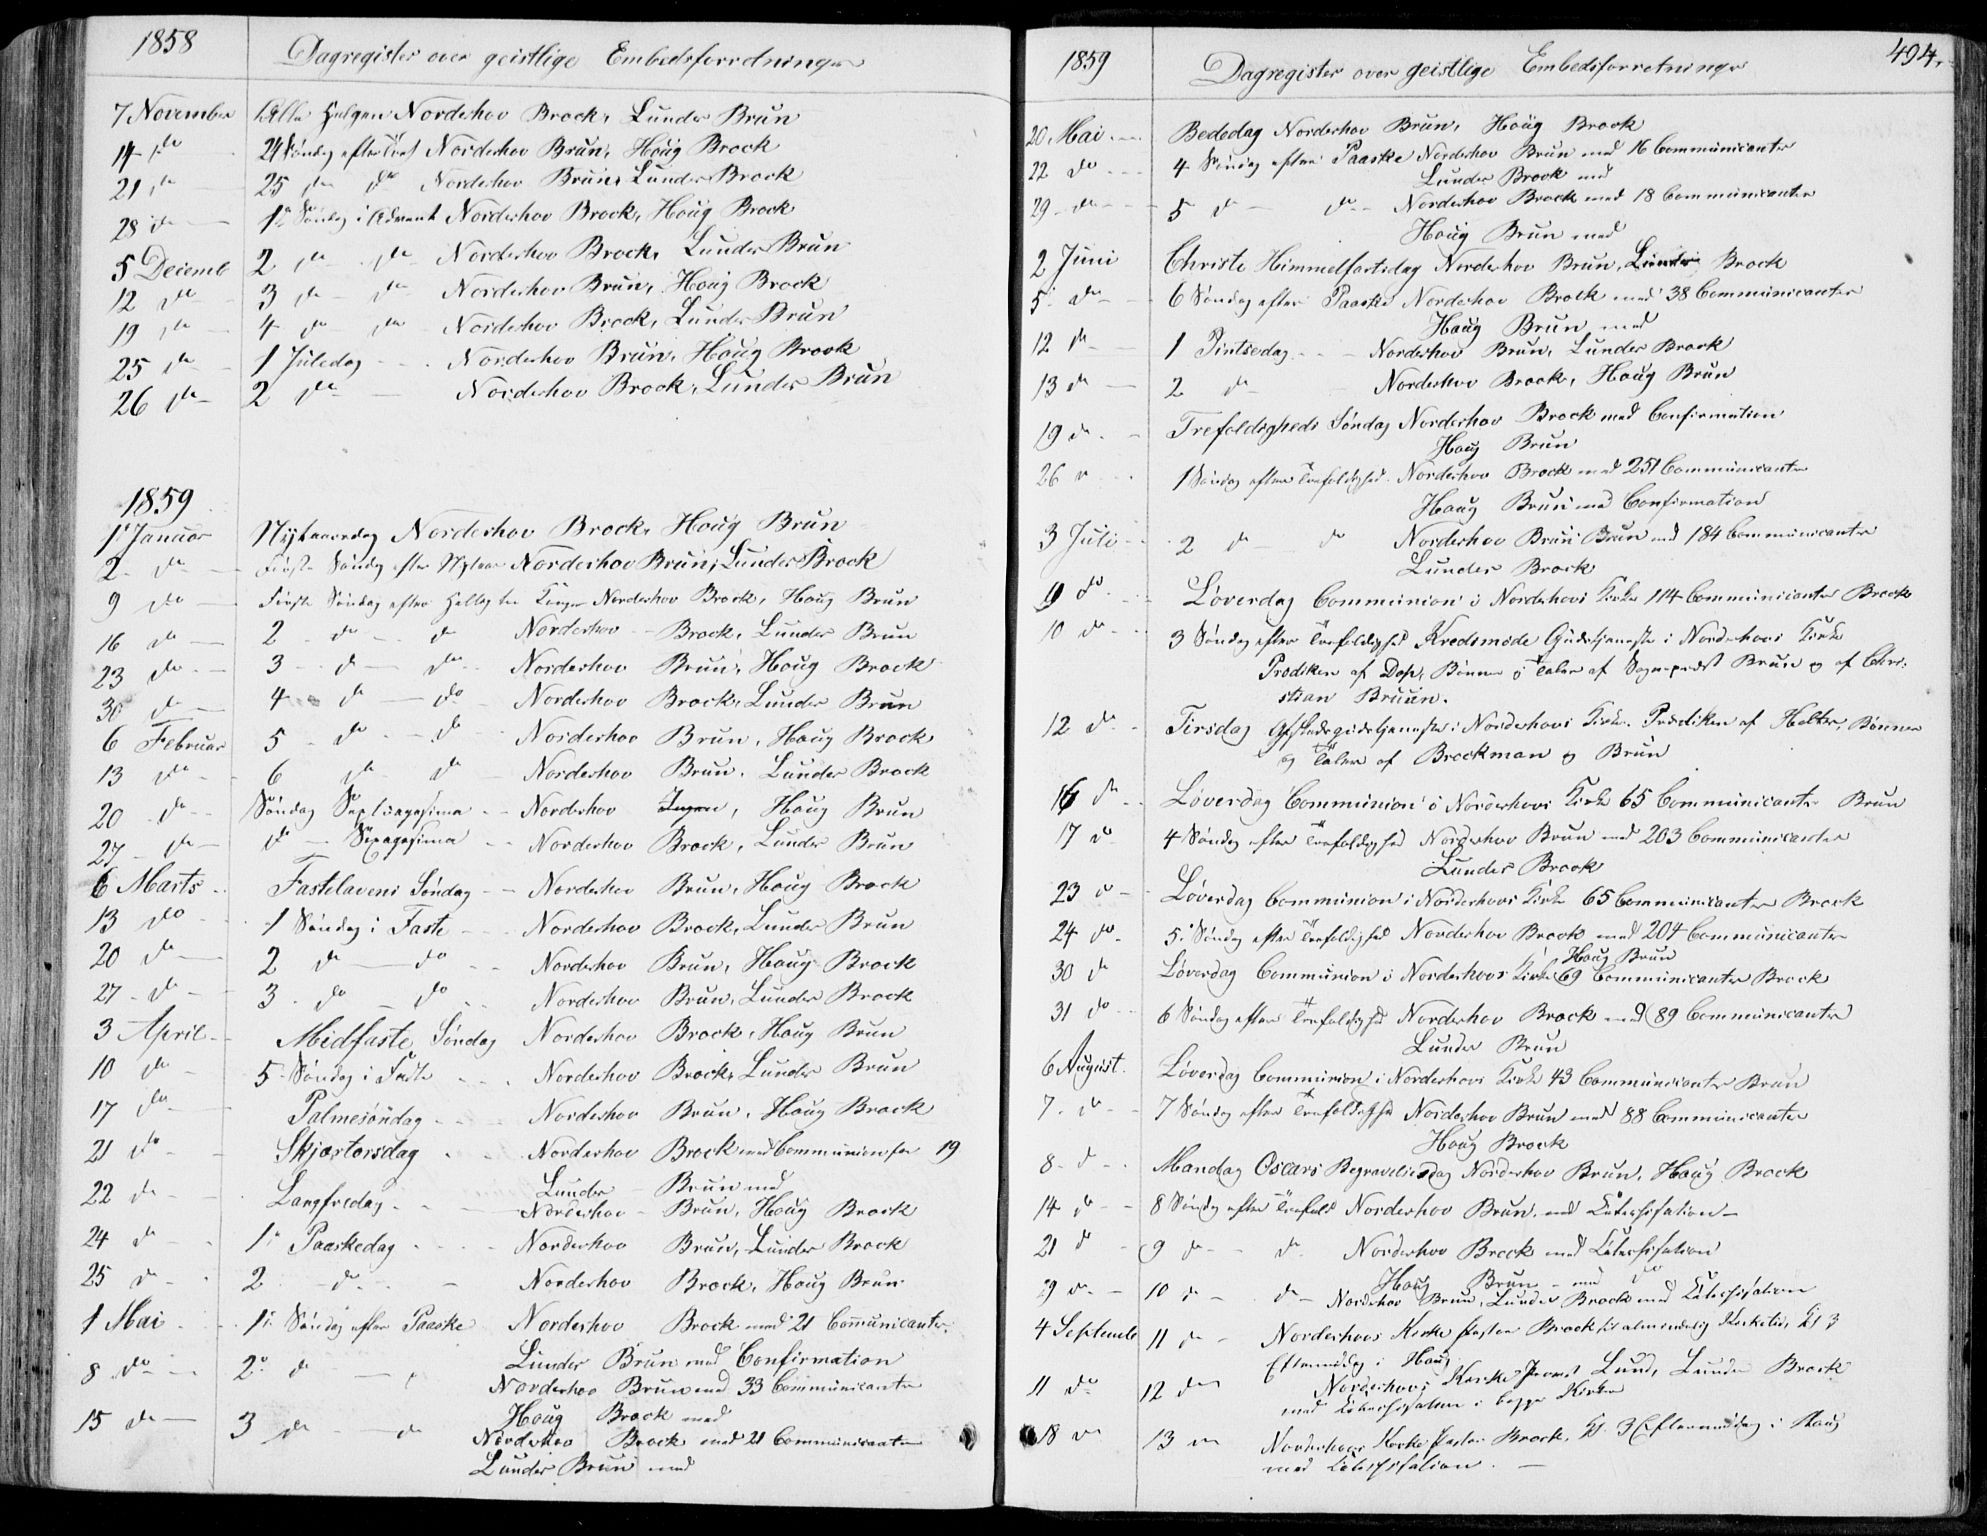 1858
Dagregister over geistlige Embedsforretninger
7 November Alle Helgen Nordeshov Brock, Lunder Brun
14 do 24 Søndag efter Tref Nordeshov Brun, Houg Brock
21 do 25 do do Nordeshov Brun, Lunder Brock
28 do 1ste Søndag i Advent Nordeshov Brock, Houg Brock
5 Decemb 2 do do Nordeshov Brock, Lunder Brun
12 do 3 do do Nordeshov Brun, Houg Brock
19 do 4 do do Nordeshov Brock, Lunder Brun
25 do 1 Juledag Nordeshov Brun, Houg Brock
26 do 2 do Nordeshov Brock, Lunder Brun
1859
1 Januar Nytaarsdag Nordeshov Brock, Houg Brun
2 do Første Søndag efter Nytaar Nordeshov Brun, Lunder Brock
9 do Første Søndag efter Hellig tre Konger Nordeshov Brock, Houg Brun
16 do 2 do do Nordeshov Brock, Lunder Brun
23 do 3 do do Nordeshov Brun, Houg Brock
30 do 4 do do Nordeshov Brock, Lunder Brun
6 Februar 5 do do Nordeshov Brun, Houg Brock
13 do 6 do do Nordeshov Brun, Lunder Brock
20 do Søndag Septuagesima Nordeshov Ingen, Houg Brun
27 do do Sexagesima Nordeshov Brock, Lunder Brun
6 Marts Fastelavens Søndag Nordeshov Brun, Houg Brock
13 do 1 Søndag i Faste Nordeshov Brock, Lunder Brun
20 do 2 do do Nordeshov Brun, Houg Brock
27 do 3 do do Nordeshov Brun, Lunder Brock
3 April Midfaste Søndag Nordeshov Brock, Houg Brun
10 do 5 Søndag i Faste Nordeshov Brock, Lunder Brun
17 do Palmesøndag Nordeshov Brun, Houg Brock
21 do Skjærtorsdag Nordeshov Brock med Communion for 19
Lunder Brun med
22 do Langfredag Nordeshov Brun, Houg Brock
24 do 1. Paaskedag Nordeshov Brun, Lunder Brock
25 do 2 do Nordeshov Brock, Houg Brun
1 Mai 1. Søndag efter Paaske Nordeshov Brock med 21 Communicanter.
Lunder Brun med Confirmation
8 do 2. do Nordeshov Brun med 33 Communicanter
Houg Brock med
15 do 3 do do Nordeshov Brock med 21 Communicanter
Lunder Brun med
1859
Dagregister over geistlige Embedsforretninger
494.
20. Mai Bededag Nordeshov Brun, Houg Brock
22 do 4 Søndag efter Paaske Nordeshov Brun med 16 Communicanter
Lunder Brock med
29 do 5 do do Nordeshov Brock med 18 Communicanter
Houg Brun med
2 Juni Christi Himmelfartsdag Nordeshov Brun, Lunder Brock
5 do 6 Søndag efter Paaske Nordeshov Brock med 38 Communicanter
Houg Brun med
12 do 1 Pintsedag Nordeshov Brun, Lunder Brock
13 do 2 do Nordeshov Brock, Houg Brun
19 do Trefoldigheds Søndag Nordeshov Brock med Confirmation
Houg Brun
26 do 1 Søndag efter Trefoldighed Nordeshov Brock med 251 Communicanter
Houg Brun med Confirmation
3 Juli 2 do do Nordeshov Brun Brun med 184 Communicanter
Lunder Brock
9 do Løverdag Communion i Nordeshovs Kirke 114 Communicanter Brock
10 do 3 Søndag efter Trefoldighed Kredsmøde Gudstjeneste i Nordeshovs Kirke
Prædiken af Dop, Bønner og Taler af Sognepræst Brun og af Chri-
stian Bruun.
12 do Tirsdag Afskedsgudstjeneste i Nordeshovs Kirke. Prædiken af Holter, Bønner
og Taler af Brockman og Brun
16 do Løverdag Communion i Nordeshovs Kirke 65 Communicanter Brun
17 do 4 Søndag efter Trefoldighed Nordeshov Brun med 203 Communicanter
Lunder Brock
23 do Løverdag Communion i Nordeshovs Kirke 65 Communicanter Brock
24 do 5. Søndag efter Trefoldighed Nordeshov Brock med 204 Communicanter
Houg Brun
30 do Løverdag Communion i Nordeshovs Kirke 69 Communicanter Brock
31 do 6 Søndag efter Trefoldighed Nordeshov Brock med 89 Communicanter
Lunder Brun
6 August. Løverdag Communion i Nordeshovs Kirke 43 Communicanter Brun
7. do 7 Søndag efter Trefoldighed Nordeshov Brun med 88 Communicanter
Houg Brock
8. do Mandag Oscars Begravelsesdag Nordeshov Brun, Houg Brock
14 do 8 Søndag efter Trefold Nordeshov Brun med Katechisation
21 do 9 do do Nordeshov Brock med Katechisation
Houg Brun med do
29 do 10 do do Nordeshov Brun, Lunder Brock med Katechisation
4 Septemb 11 do Nordeshovs Kirke Pastor Brock Kl 3
Eftermiddag i Houg
11 do 12 do Nordeshovs Kirke Provst Lund, Lunder Brock
med Katechisation i begge Kirker
18 do 13 do Nordeshovs Kirke Pastor Brock, Kl. 3 Eftermiddag i Houg
med Katechisation.